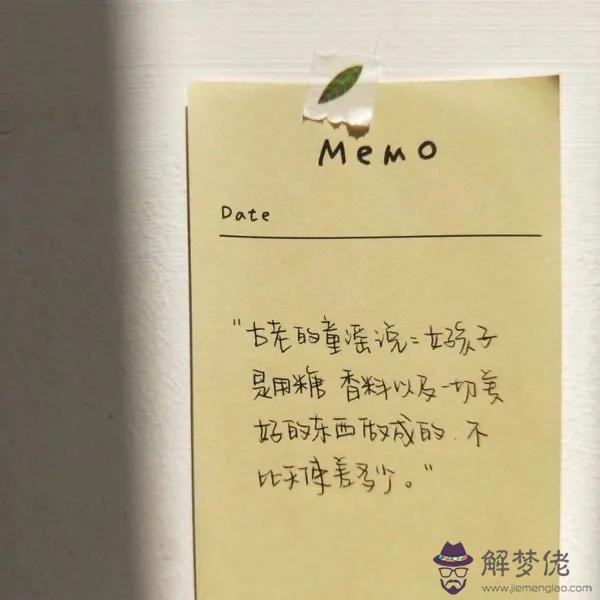 Memo
Date
"古老的童谣说：女孩子
是用糖 香料以及一切美
好的东西做成的、不
比天使差多少。"
解梦佬
www.jiemenglao.com